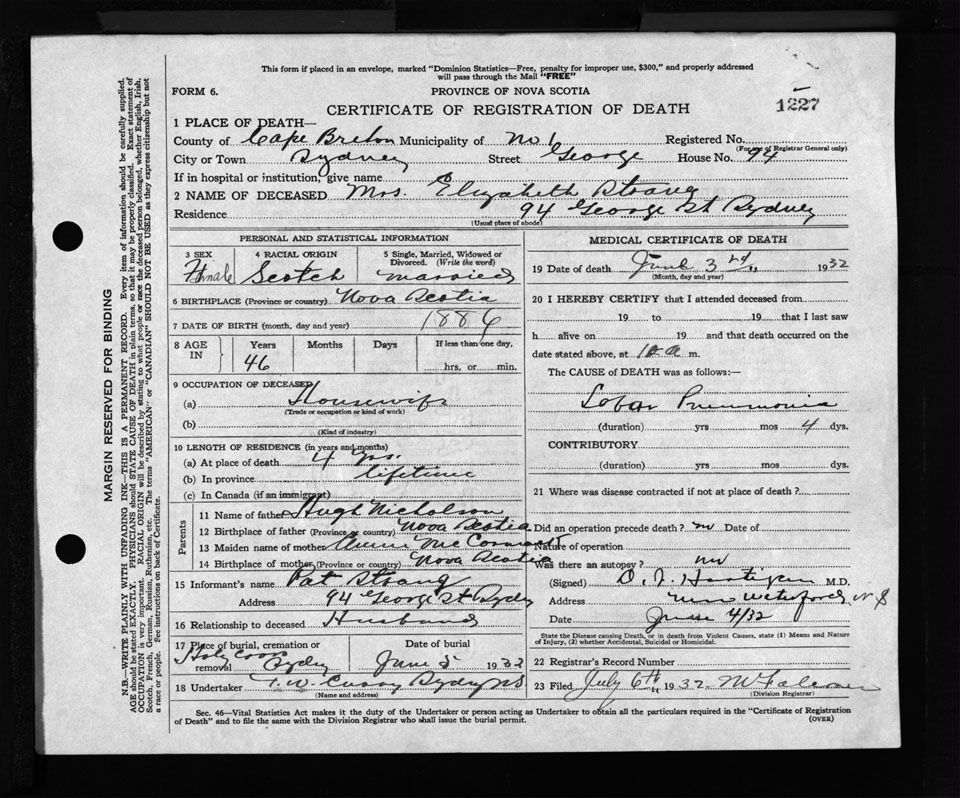 This form if placed in an envelope, marked "Dominion Statistics—Free, penalty for improper use, $300," and properly addressed
will pass through the Mail "FREE"
FORM 6. PROVINCE OF NOVA SCOTIA
CERTIFICATE OF REGISTRATION OF DEATH 1227
1 PLACE OF DEATH—
County of Cape Breton Municipality of No 1 Registered No.
(For use of Registrar General only)
City or Town Sydney Street George House No. 94
If in hospital or institution, give name
2 NAME OF DECEASED Mrs. Elizabeth Strang
Residence 94 George St Sydney
(Usual place of abode)
PERSONAL AND STATISTICAL INFORMATION
3 SEX Female
4 RACIAL ORIGIN Scotch
5 Single, Married, Widowed or Divorced. (Write the word) married
6 BIRTHPLACE (Province or country) Nova Scotia
7 DATE OF BIRTH (month, day and year) 1886
8 AGE IN Years Months Days If less than one day,
46 hrs. or min.
9 OCCUPATION OF DECEASED
(a) Housewife
(Trade or occupation or kind of work)
(b)
(Kind of industry)
10 LENGTH OF RESIDENCE (in years and months)
(a) At place of death 4 yrs.
(b) In province lifetime
(c) In Canada (if an immigrant)
Parents
11 Name of father Hugh Nicholson
12 Birthplace of father (Province or country) Nova Scotia
13 Maiden name of mother Annie McCormack
14 Birthplace of mother (Province or country) Nova Scotia
15 Informant's name Pat Strang
Address 94 George St Sydney
16 Relationship to deceased Husband
17 Place of burial, cremation or removal Holy Cross Sydney
Date of burial June 5 1932
18 Undertaker T. W. Curry Sydney NS
(Name and address)
MEDICAL CERTIFICATE OF DEATH
19 Date of death June 3rd, 1932
(Month, day and year)
20 I HEREBY CERTIFY that I attended deceased from
19 to 19 that I last saw
h alive on 19 and that death occurred on
date stated above, at 10 a m.
The CAUSE of DEATH was as follows:—
Lobar Pneumonia
(duration) yrs mos 4 dys.
CONTRIBUTORY
(duration) yrs mos dys.
21 Where was disease contracted if not at place of death?
Did an operation precede death? no Date of
Nature of operation
Was there an autopsy? no
(Signed) D. J. Hartigan M.D.
Address New Waterford, N S
Date June 4/32
State the Disease causing Death, or in death from Violent Causes, state (1) Means and Nature
of Injury, (2) whether Accidental, Suicidal or Homicidal.
22 Registrar's Record Number
23 Filed July 6th, 1932
(Division Registrar)
Sec. 46—Vital Statistics Act makes it the duty of the Undertaker or person acting as Undertaker to obtain all the particulars required in the "Certificate of Registration
of Death" and to file the same with the Division Registrar who shall issue the burial permit. (OVER)
MARGIN RESERVED FOR BINDING
N.B.—WRITE PLAINLY WITH UNFADING INK—THIS IS A PERMANENT RECORD. Every item of information should be carefully supplied.
AGE should be stated EXACTLY. PHYSICIANS should STATE CAUSE OF DEATH in plain terms, so that it may be properly classified. Exact statement of
OCCUPATION is very important. RACIAL ORIGIN will be described by stating to what people or race the deceased person belonged, whether English, Irish,
Scotch, French, German, Russian, Ruthenian, etc. The terms "AMERICAN" or "CANADIAN" SHOULD NOT BE USED as they express citizenship but not
a race or people. See instructions on back of Certificate.